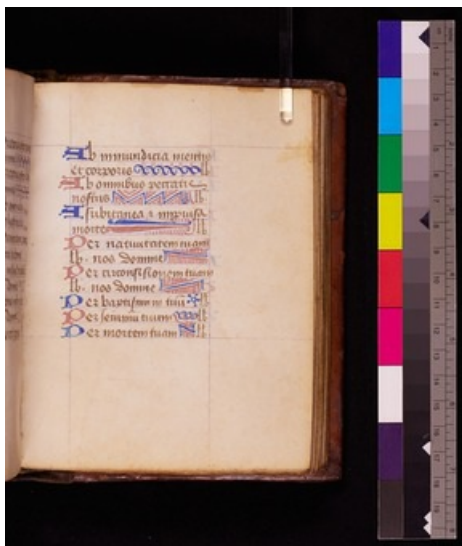 Ab inmundicia mentis
et corporis lb
Ab omnibus peccatis
nostris lb
A subitanea i inprovisa
morte lb
Per nativitatem tuam
lb. nos domine lb
Per circonsisionem tuam
lb. nos domine lb
Per baptismum tuu lb
Per ieiuniu tuum lb
Per mortem tuam lb